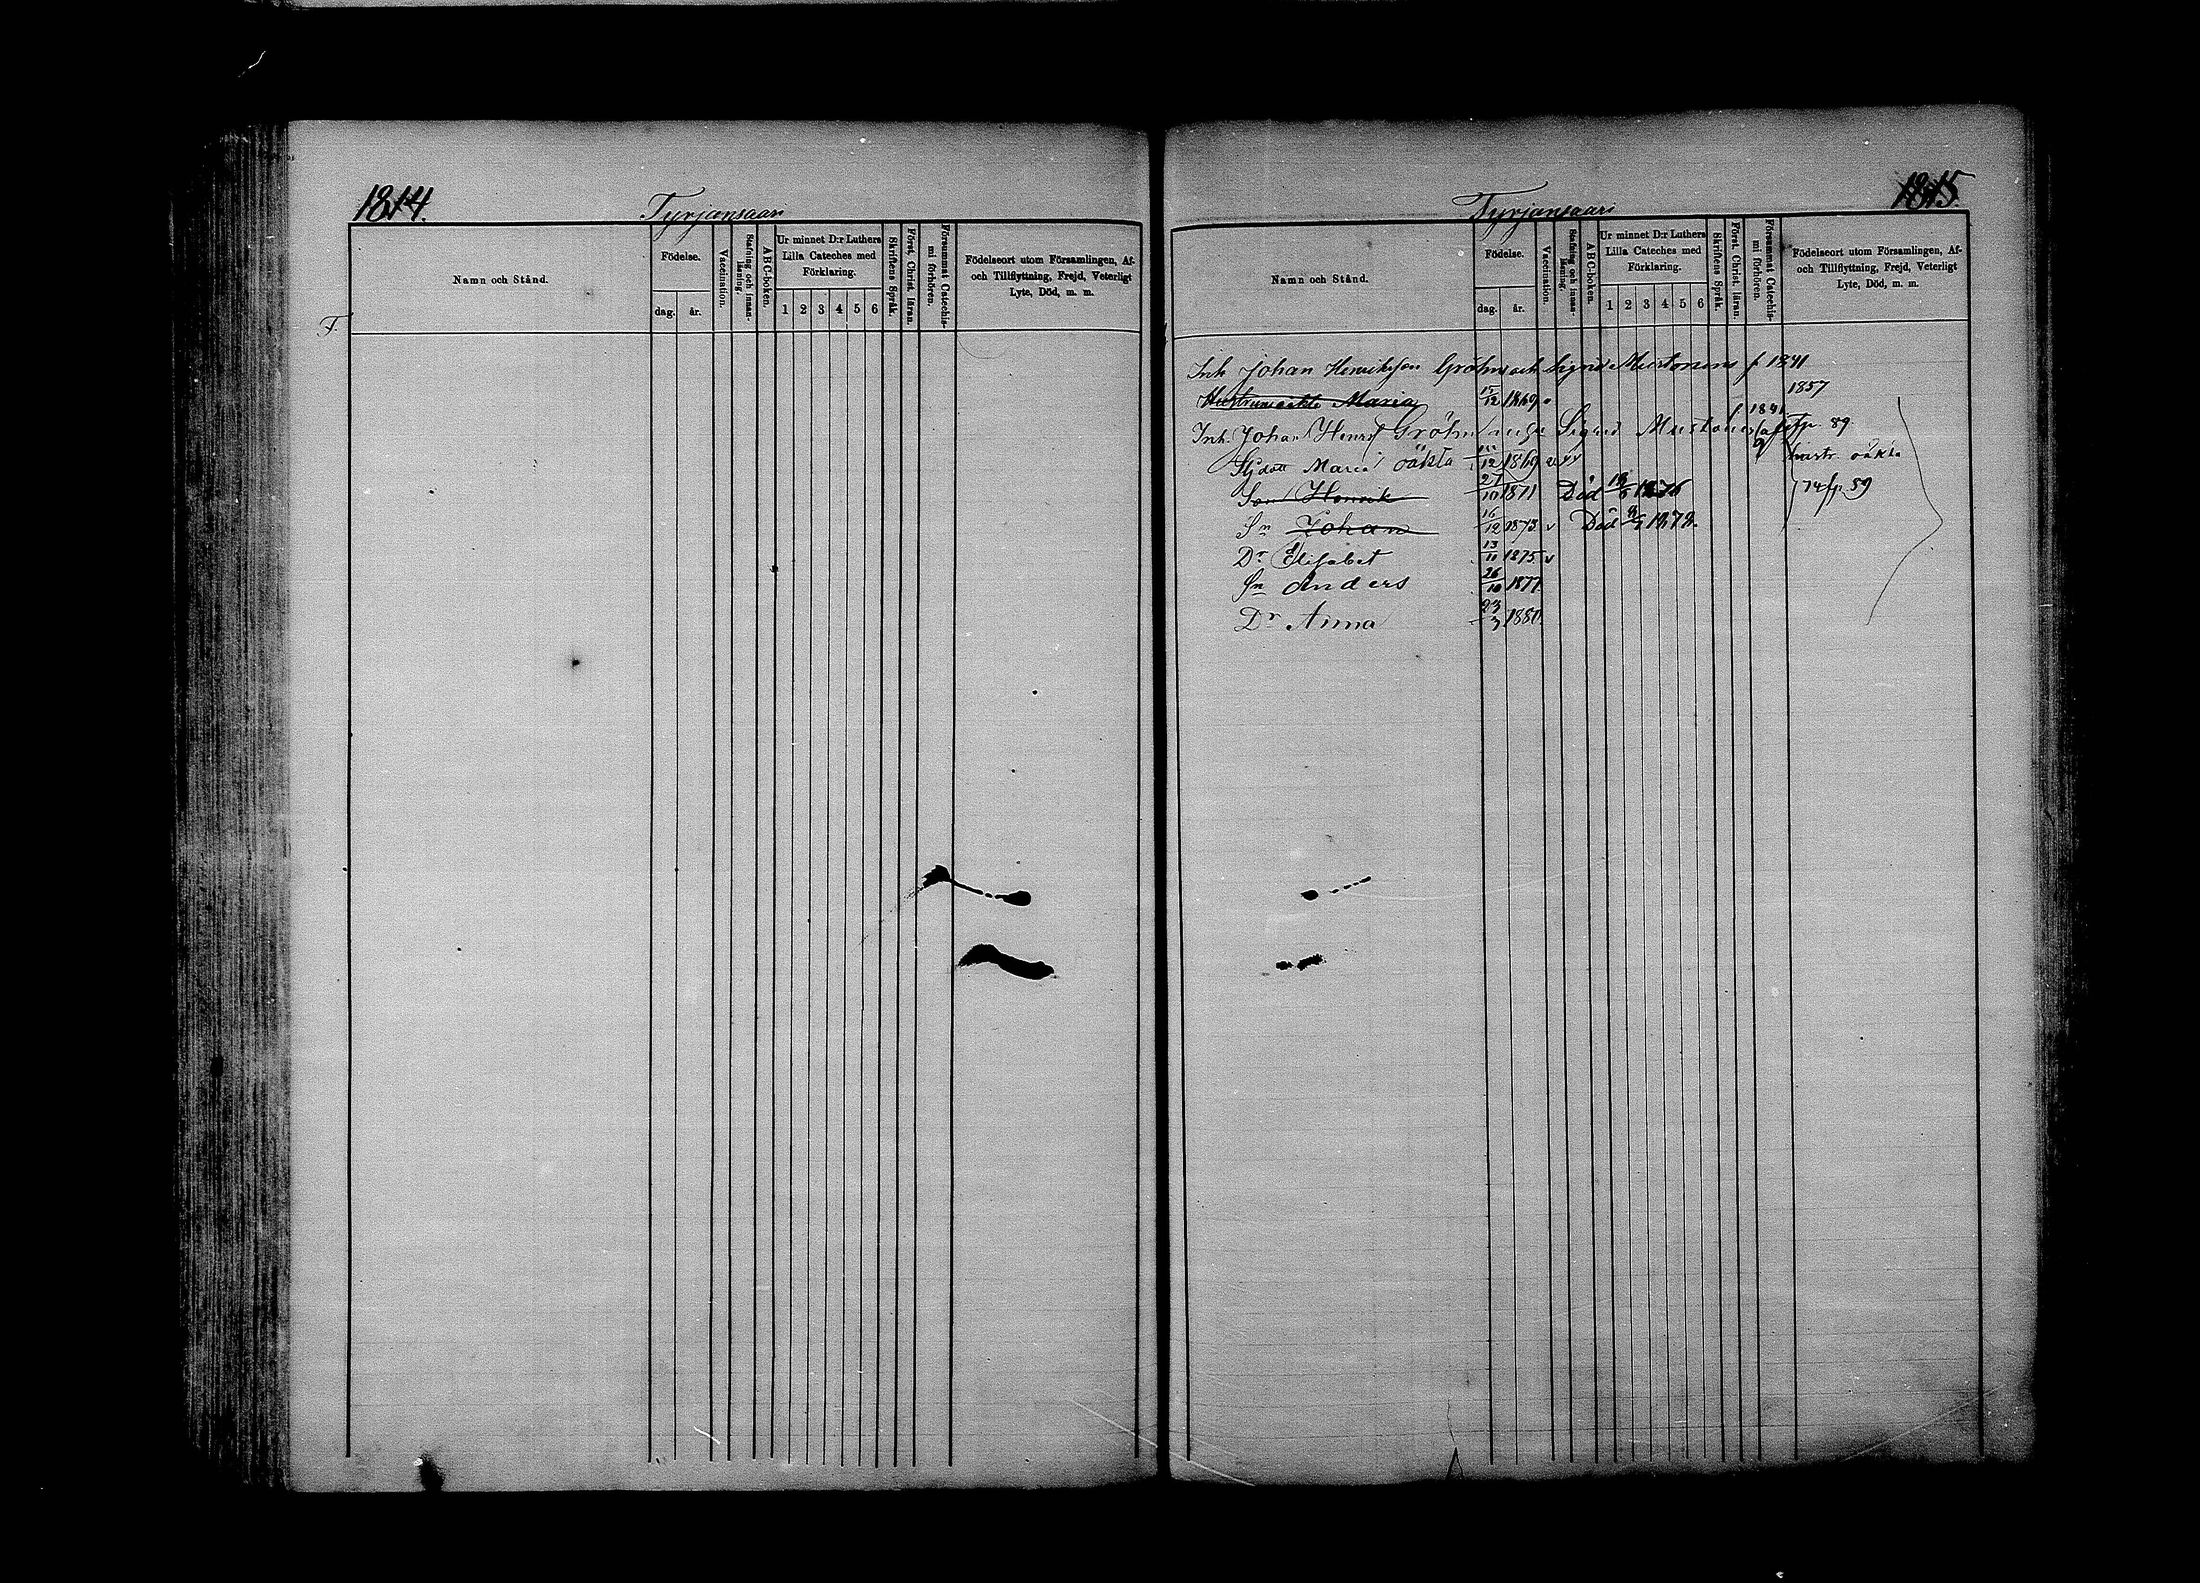 1814.
Tyrjänsaari
Namn och Stånd.
Födelse.
dag.
år.
Vaccination.
Stafning och innan-läsning.
ABC-boken.
Ur minnet D:r Luthers Lilla Cateches med Förklaring.
1 2 3 4 5 6
Skriftens Språk.
Först. Christ. läran.
Försummat Catechis-mi förhören.
Födelseort utom Församlingen, Af- och Tillflyttning, Frejd, Veterligt Lyte, Död, m. m.
T.
Tyrjänsaari
1815.
Namn och Stånd.
Födelse.
dag.
år.
Vaccination.
Stafning och innan-läsning.
ABC-boken.
Ur minnet D:r Luthers Lilla Cateches med Förklaring.
1 2 3 4 5 6
Skriftens Språk.
Först. Christ. läran.
Försummat Catechis-mi förhören.
Födelseort utom Församlingen, Af- och Tillflyttning, Frejd, Veterligt Lyte, Död, m. m.
Inh Johan Henriksson Gröhn och Sigrid Mustonens f 1841
1857
Hustruns oäkta Maria 15/12 1869
f 1841
Inh. Johan Henrik Gröhn Sigrid Mustonen p. 89
Maria oäkta 12 1869 hustr. oäkta
Son Henrik 27/10 1871 Död 1876 p 59
Sn Johan 16/12 1873 v Död
Dr Elisabet 13/11 1875 v
Sn Anders 26/10 1877.
Dr Anna 23/3 1880.